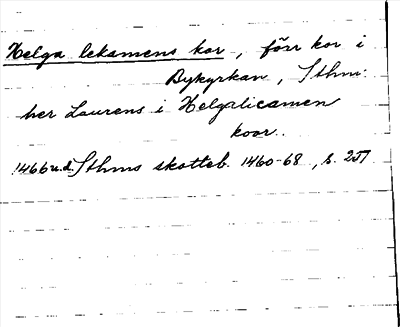 Helga lekamens kor, förr kor i
Bykyrkan, Sthm:
her Laurens i Helgalicamen
koor.
1466 u.d. Sthms skotteb. 1460-68, s. 257